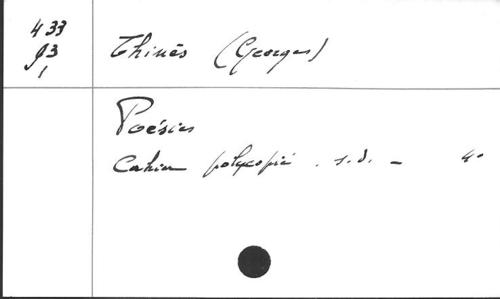 433
93
1
Thinès (Georges)
Poésies
Cahier polycopié . s.d. – 4°